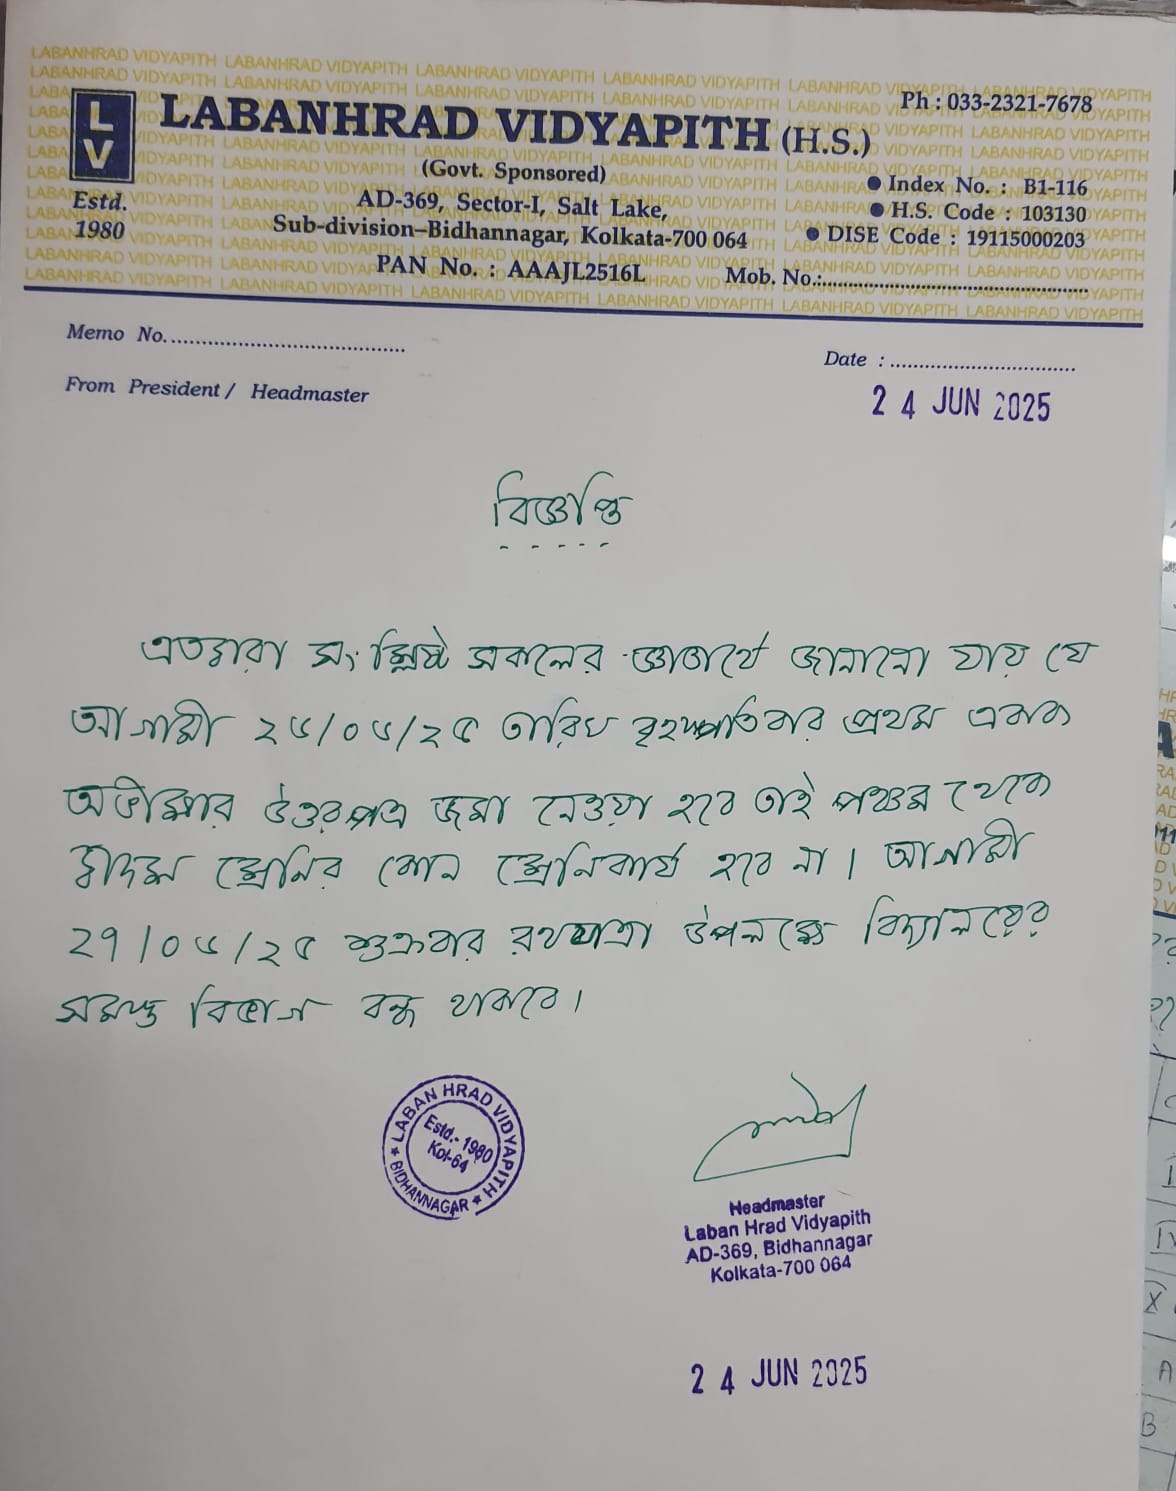 LABANHRAD VIDYAPITH (H.S.)
Ph : 033-2321-7678
LV
(Govt. Sponsored)
Estd.
1980
AD-369, Sector-I, Salt Lake,
Sub-division–Bidhannagar, Kolkata-700 064
PAN No. : AAAJL2516L
Index No. : B1-116
H.S. Code : 103130
DISE Code : 19115000203
Mob. No.:
Memo No.
Date :
From President / Headmaster
24 JUN 2025
বিজ্ঞপ্তি
এতদ্বারা সংশ্লিষ্ট সকলের জ্ঞাতার্থে জানানো যায় যে
আগামী ২৬/০৬/২৫ তারিখ বৃহস্পতিবার প্রথম একক
অভীক্ষার উত্তরপত্র জমা নেওয়া হবে তাই পঞ্চম থেকে
দ্বাদশ শ্রেনির কোন শ্রেনিকার্য হবে না। আগামী
২৭/০৬/২৫ শুক্রবার রথযাত্রা উপলক্ষে বিদ্যালয়ের
সমস্ত বিভাগ বন্ধ থাকবে।
LABAN HRAD VIDYAPITH
Estd.- 1980
Kol-64
BIDHANNAGAR
Headmaster
Laban Hrad Vidyapith
AD-369, Bidhannagar
Kolkata-700 064
24 JUN 2025